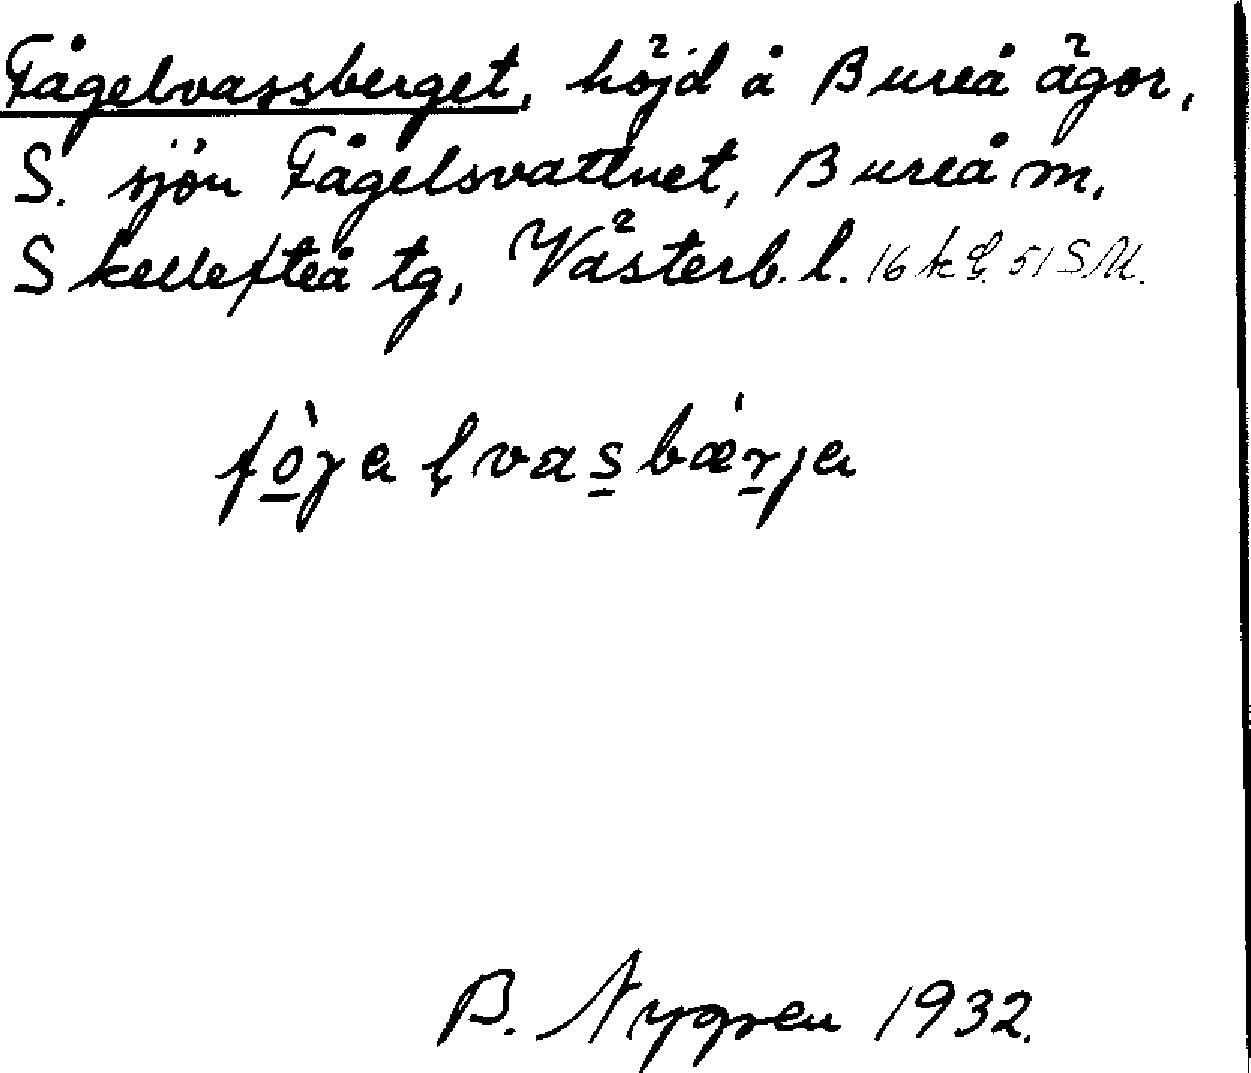 Fågelvassberget, höjd å Bureå ägor,
S. sjön Fågelsvattnet, Bureå m,
Skellefteå tg, Västerb. l. 16 k 51 SM.
B. Nygren 1932.